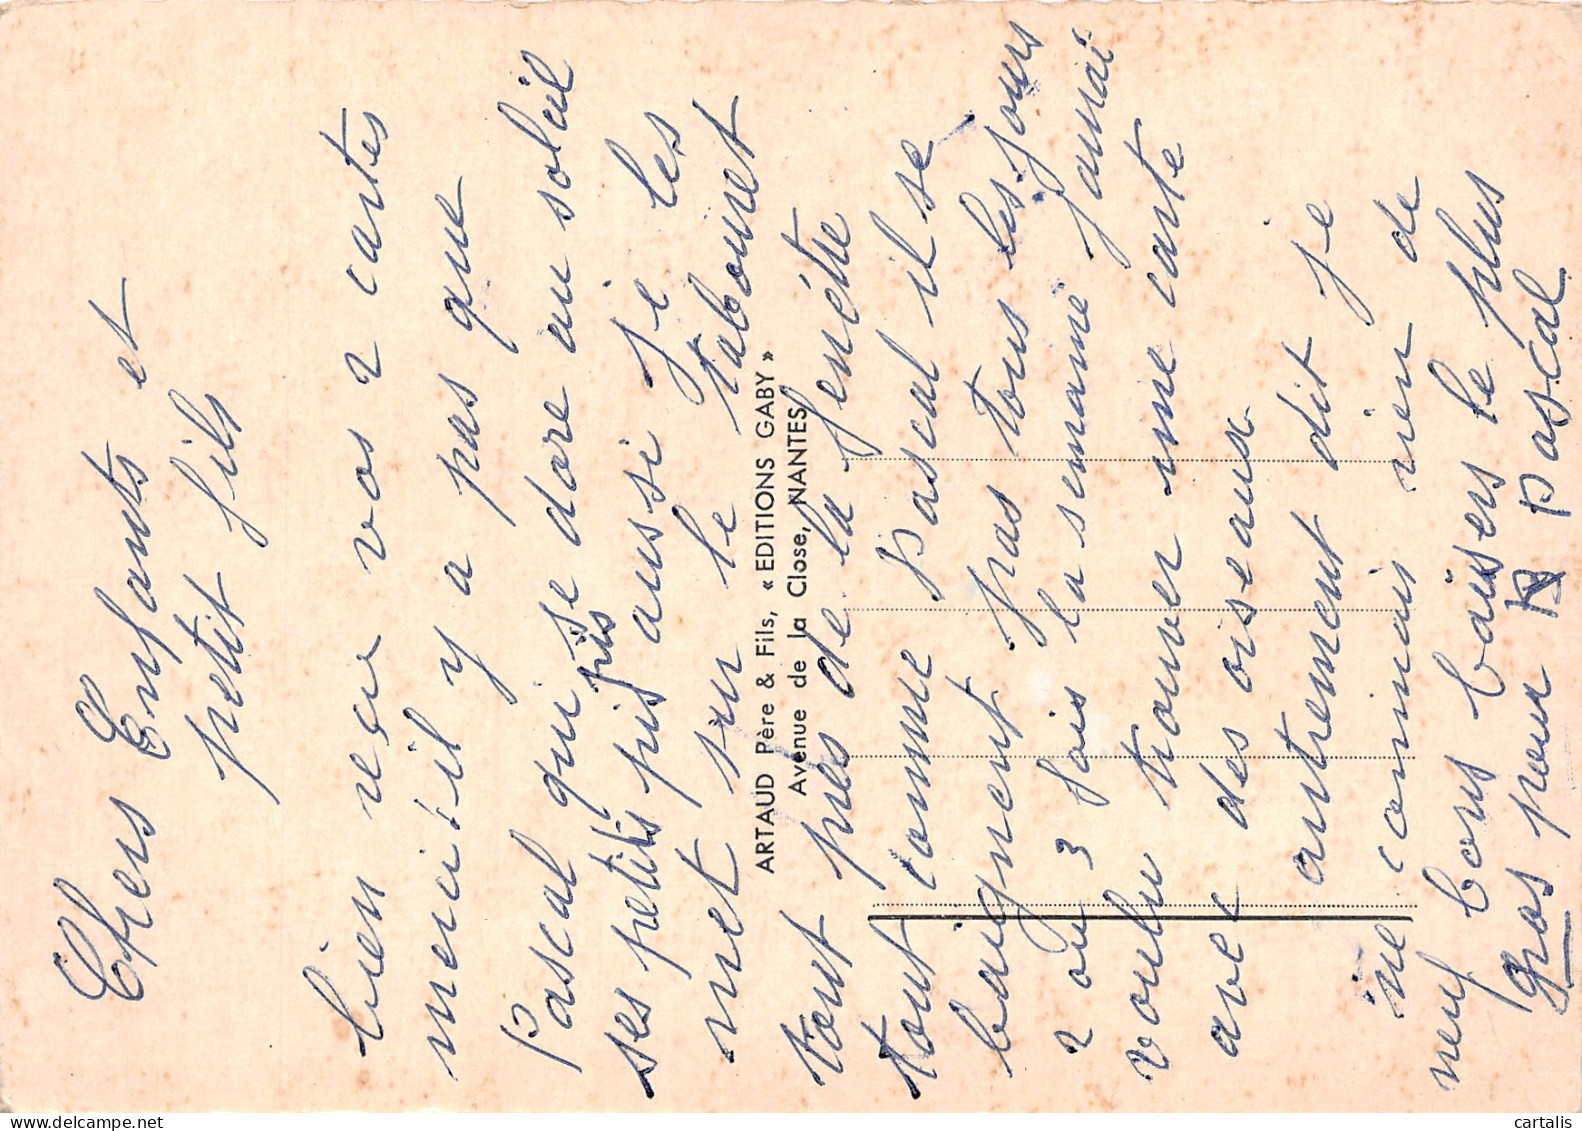 Chers Enfants et
petit fils
bien reçu vos 2 cartes
merci il y a pas que
Pascal qui se dore au soleil
pis
ses petits pis aussi je les
met sur le tabouret
tout près de la fenêtre
tout comme Pascal il se
baignent pas tous les jours
2 ou 3 fois la semaine jamai
voulu trouver une carte
avec des oiseaux
autrement dit je
ne connais rien de
neuf bons baisers le plus
Gros pour Pascal
ARTAUD Père & Fils, « EDITIONS GABY »
Avenue de la Close, NANTES
cartalis
delcampe.net